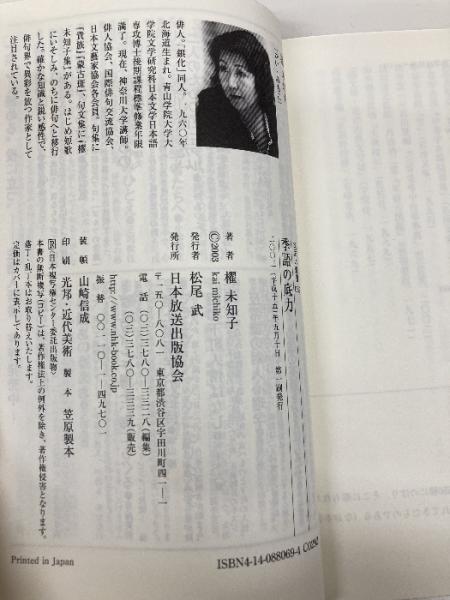 俳人。「銀化」同人。一九六〇年
北海道生まれ。青山学院大学大
学院文学研究科日本文学日本語
専攻博士後期課程標準修業年限
満了。現在、神奈川大学講師。
俳人協会、国際俳句交流協会、
日本文藝家協会各会員。句集に
『貴族』『蒙古斑』、句文集に『櫂
未知子集』がある。はじめ短歌
にいそしみ、のちに俳句へと移行
した。確かな知識と鋭い感性で、
俳句界で異彩を放つ作家として
注目されている。
季語の底力
二〇〇三(平成十五)年五月十日 第一刷発行
著者 櫂 未知子
©2003 kai michiko
発行者 松尾 武
発行所 日本放送出版協会
〒一五〇-八〇八一 東京都渋谷区宇田川町四一-一
電話 (〇三)三七八〇-三三二八(編集)
(〇三)三七八〇-三三三九(販売)
http://www.nhk-book.co.jp
振替 〇〇一一〇-一-四九七〇一
装幀 山崎信成
印刷 光邦・近代美術 製本 笠原製本
R〈日本複写権センター委託出版物〉
本書の無断複写(コピー)は、著作権法上の例外を除き、著作権侵害となります。
落丁・乱丁本はお取り替えいたします。
定価はカバーに表示してあります。
Printed in Japan
ISBN4-14-088069-4 C0292